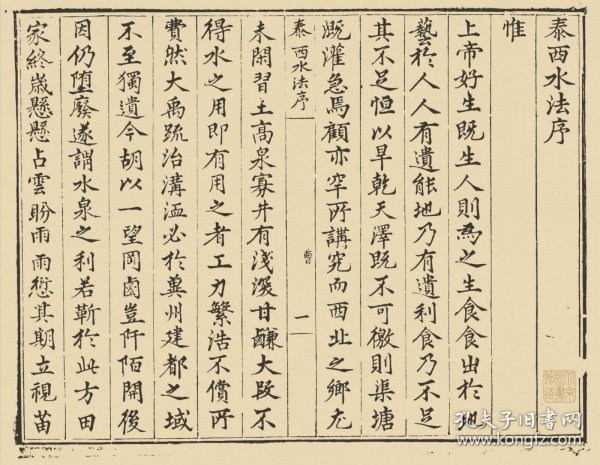 泰西水法序
惟
上帝好生既生人則為之生食食出於地
藝於人人有遺能地乃有遺利食乃不足
其不足恒以旱乾天澤既不可徼則渠塘
溉灌急焉顧亦罕所講究而西北之鄉尤
泰西水法序 曹 一
未閑習土高泉寡井有淺深甘鹻大段不
得水之用即有用之者工力繁浩不償所
費然大禹疏治溝洫必於冀州建都之域
不至獨遺今胡以一望岡鹵豈阡陌開後
因仍墮廢遂謂水泉之利若靳於此方田
家終歲懸懸占雲盼雨雨愆其期立視苗
孔夫子旧书网
www.kongfz.com